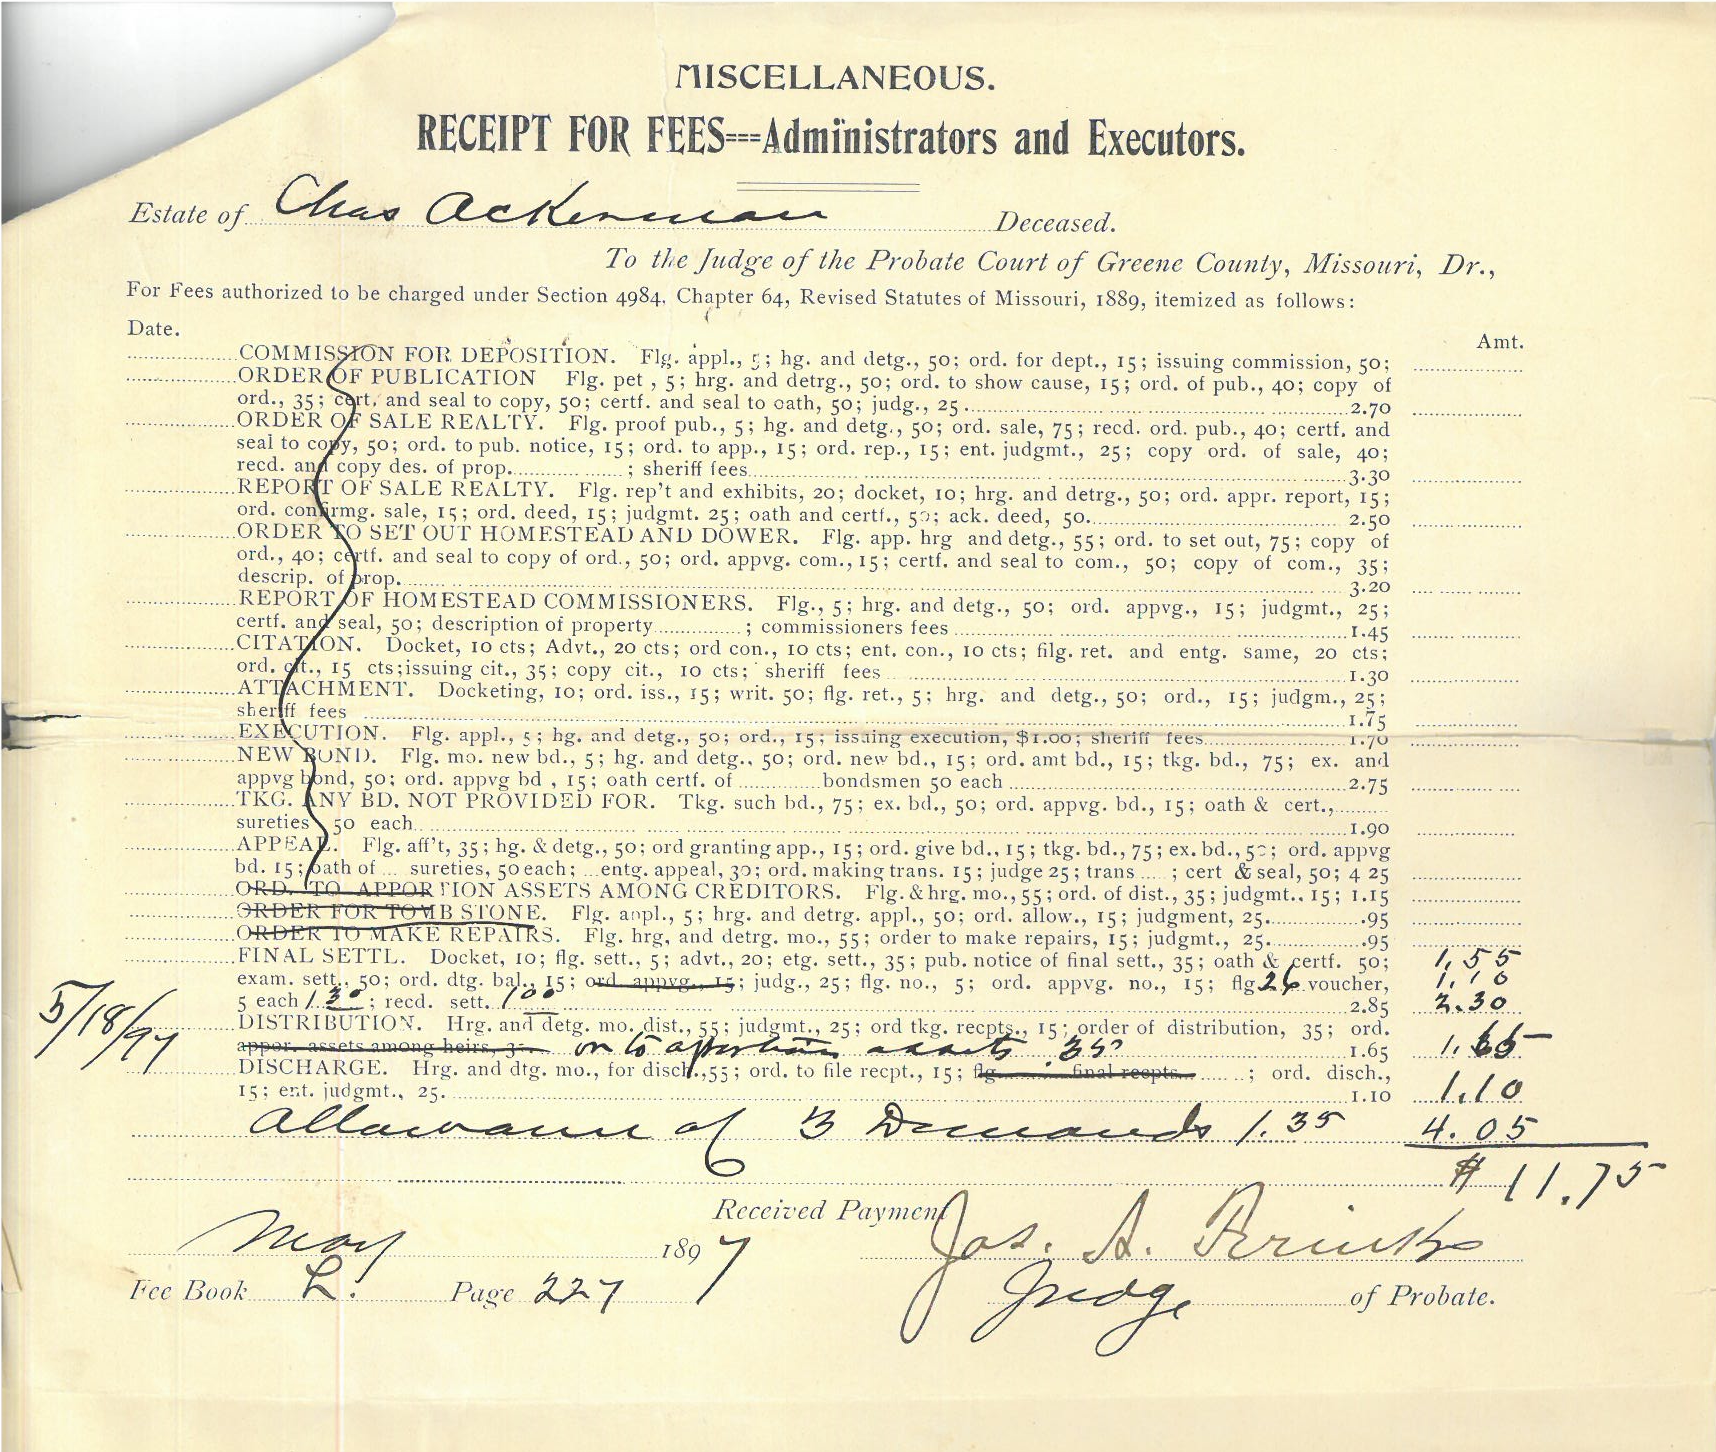 MISCELLANEOUS.
RECEIPT FOR FEES===Administrators and Executors.
Estate of Chas Ackerman Deceased.
To the Judge of the Probate Court of Greene County, Missouri, Dr.,
For Fees authorized to be charged under Section 4984, Chapter 64, Revised Statutes of Missouri, 1889, itemized as follows:
Date. Amt.
COMMISSION FOR DEPOSITION. Flg. appl., 5; hg. and detg., 50; ord. for dept., 15; issuing commission, 50;
ORDER OF PUBLICATION Flg. pet , 5; hrg. and detrg., 50; ord. to show cause, 15; ord. of pub., 40; copy of
ord., 35; cert. and seal to copy, 50; certf. and seal to oath, 50; judg., 25 2.70
ORDER OF SALE REALTY. Flg. proof pub., 5; hg. and detg., 50; ord. sale, 75; recd. ord. pub., 40; certf. and
seal to copy, 50; ord. to pub. notice, 15; ord. to app., 15; ord. rep., 15; ent. judgmt., 25; copy ord. of sale, 40;
recd. and copy des. of prop. ; sheriff fees 3.30
REPORT OF SALE REALTY. Flg. rep't and exhibits, 20; docket, 10; hrg. and detrg., 50; ord. appr. report, 15;
ord. confirmg. sale, 15; ord. deed, 15; judgmt. 25; oath and certf., 50; ack. deed, 50. 2.50
ORDER TO SET OUT HOMESTEAD AND DOWER. Flg. app. hrg and detg., 55; ord. to set out, 75; copy of
ord., 40; certf. and seal to copy of ord., 50; ord. appvg. com., 15; certf. and seal to com., 50; copy of com., 35;
descrip. of prop. 3.20
REPORT OF HOMESTEAD COMMISSIONERS. Flg., 5; hrg. and detg., 50; ord. appvg., 15; judgmt., 25;
certf. and seal, 50; description of property ; commissioners fees 1.45
CITATION. Docket, 10 cts; Advt., 20 cts; ord con., 10 cts; ent. con., 10 cts; filg. ret. and entg. same, 20 cts;
ord. cit., 15 cts;issuing cit., 35; copy cit., 10 cts; sheriff fees 1.30
ATTACHMENT. Docketing, 10; ord. iss., 15; writ. 50; flg. ret., 5; hrg. and detg., 50; ord., 15; judgm., 25;
sheriff fees 1.75
EXECUTION. Flg. appl., 5; hg. and detg., 50; ord., 15; issuing execution, $1.00; sheriff fees 1.70
NEW BOND. Flg. mo. new bd., 5; hg. and detg., 50; ord. new bd., 15; ord. amt bd., 15; tkg. bd., 75; ex. and
appvg bond, 50; ord. appvg bd , 15; oath certf. of bondsmen 50 each 2.75
TKG. ANY BD. NOT PROVIDED FOR. Tkg. such bd., 75; ex. bd., 50; ord. appvg. bd., 15; oath & cert.,
sureties 50 each 1.90
APPEAL. Flg. aff't, 35; hg. & detg., 50; ord granting app., 15; ord. give bd., 15; tkg. bd., 75; ex. bd., 50; ord. appvg
bd. 15; oath of sureties, 50 each; entg. appeal, 30; ord. making trans. 15; judge 25; trans ; cert & seal, 50; 4 25
ORD. TO APPORTION ASSETS AMONG CREDITORS. Flg. & hrg. mo., 55; ord. of dist., 35; judgmt., 15; 1.15
ORDER FOR TOMB STONE. Flg. appl., 5; hrg. and detrg. appl., 50; ord. allow., 15; judgment, 25. .95
ORDER TO MAKE REPAIRS. Flg. hrg, and detrg. mo., 55; order to make repairs, 15; judgmt., 25. .95
FINAL SETTL. Docket, 10; flg. sett., 5; advt., 20; etg. sett., 35; pub. notice of final sett., 35; oath & certf. 50; 1.55
exam. sett., 50; ord. dtg. bal., 15; ord. appvg., 15; judg., 25; flg. no., 5; ord. appvg. no., 15; flg 26 voucher, 1.10
5 each 1.30; recd. sett. 1.00 2.85 2.30
5/18/97 DISTRIBUTION. Hrg. and detg. mo. dist., 55; judgmt., 25; ord tkg. recpts., 15; order of distribution, 35; ord.
appor. assets among heirs, 35. or to apportion assets .35 1.65 1.65
DISCHARGE. Hrg. and dtg. mo., for disch.,55; ord. to file recpt., 15; flg. final recpts. ; ord. disch.,
15; ent. judgmt., 25. 1.10 1.10
Allowance of 3 Demands 1.35 4.05
$ 11.75
Received Payment
May 1897 Jos. A.
Fee Book L. Page 227 Judge of Probate.